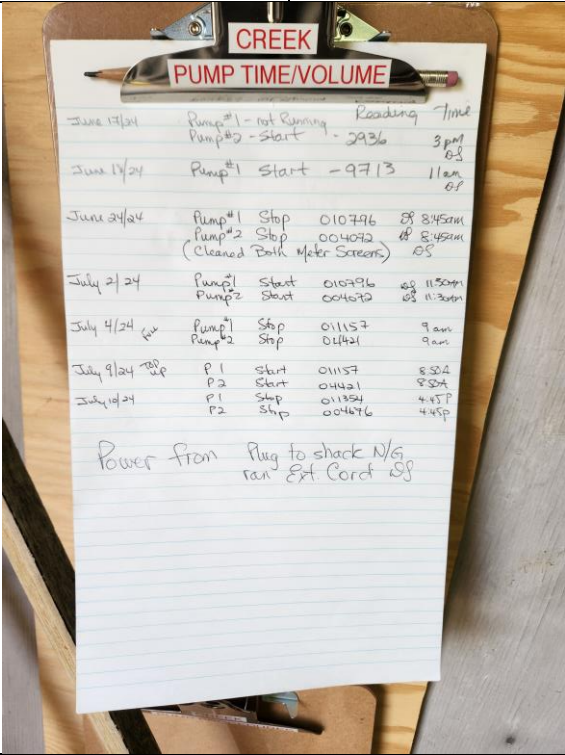 CREEK
PUMP TIME/VOLUME
Reading Time
June 17/24 Pump #1 - not Running
Pump #2 - Start - 2936 3 pm
DS
June 18/24 Pump #1 Start - 9713 11 am
DS
June 24/24 Pump #1 Stop 010796 DS 8:45am
Pump #2 Stop 004072 DS 8:45am
(Cleaned Both Meter Screens) DS
July 2/24 Pump #1 Start 010796 DS 11:30am
Pump #2 Start 004072 DS 11:30am
July 4/24 Full Pump #1 Stop 011157 9 am
Pump #2 Stop 04421 9am
July 9/24 Top up P1 Start 011157 8:50A
P2 Start 04421 8:50A
July 10/24 P1 Stop 011354 4:45P
P2 Stop 004696 4:45p
Power from Plug to shack N/G
ran Ext. Cord DS